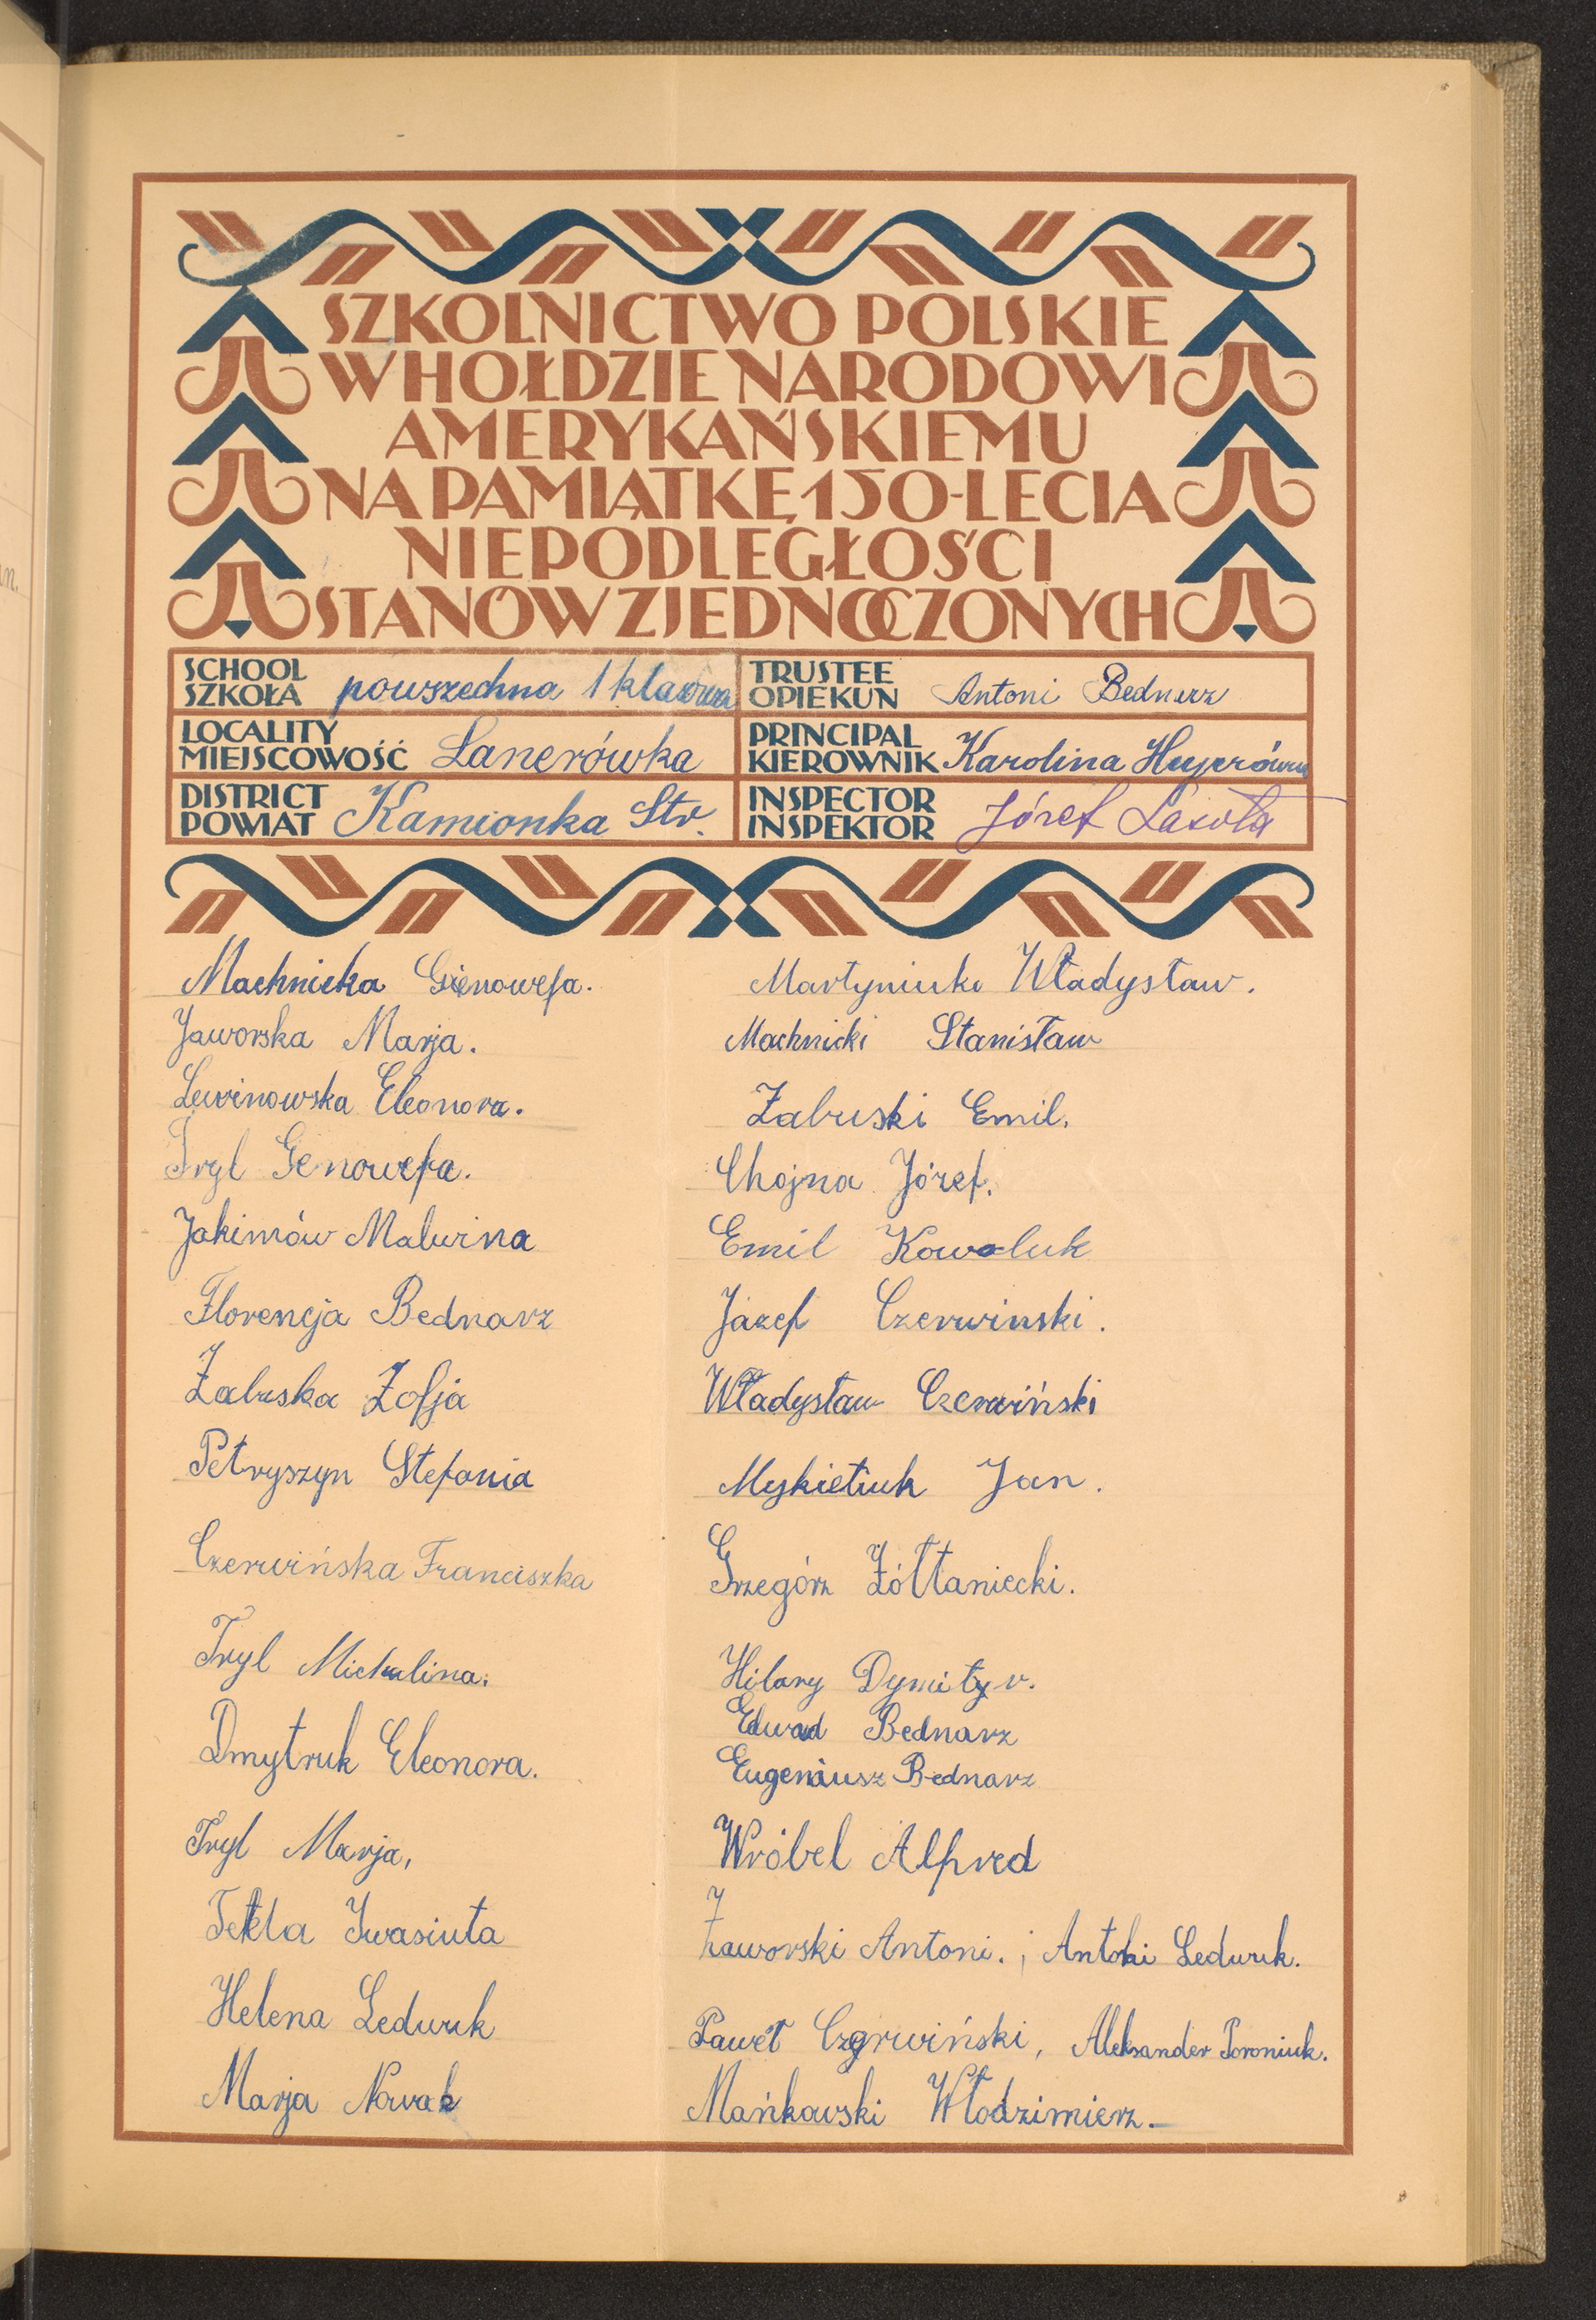 SZKOLNICTWO POLSKIE
W HOŁDZIE NARODOWI
AMERYKAŃSKIEMU
NA PAMIĄTKĘ 150-LECIA
NIEPODLEGŁOŚCI
STANÓW ZJEDNOCZONYCH
SCHOOL
SZKOŁA powszechna 1 klasowa
TRUSTEE
OPIEKUN Antoni Bednarz
LOCALITY
MIEJSCOWOŚĆ Lanerówka
PRINCIPAL
KIEROWNIK Karolina Heyerówna
DISTRICT
POWIAT Kamionka Str.
INSPECTOR
INSPEKTOR Józef Lasota
Machnicka Gienowefa.
Jaworska Marja.
Lewinowska Eleonora.
Tryl Genowefa.
Jakimów Malwina
Florencja Bednarz
Załuska Zofja
Petryszyn Stefania
Czerwińska Franciszka
Tryl Michalina.
Dmytruk Eleonora.
Tryl Marja,
Tekla Iwasiuta
Helena Leduck
Marja Nowak
Martyniuk Władysław.
Machnicki Stanisław
Zabuski Emil.
Chojna Józef.
Emil Kowaluk
Józef Czerwinski.
Władysław Czerwiński
Myskietiuk Jan.
Grzegórz Żółtaniecki.
Hilary Dymityr.
Edwad Bednarz
Eugeniusz Bednarz
Wróbel Alfred
Jaworski Antoni. ; Antoni Leduck.
Paweł Czerwiński, Aleksander Poroniuk.
Mańkowski Włodzimierz.